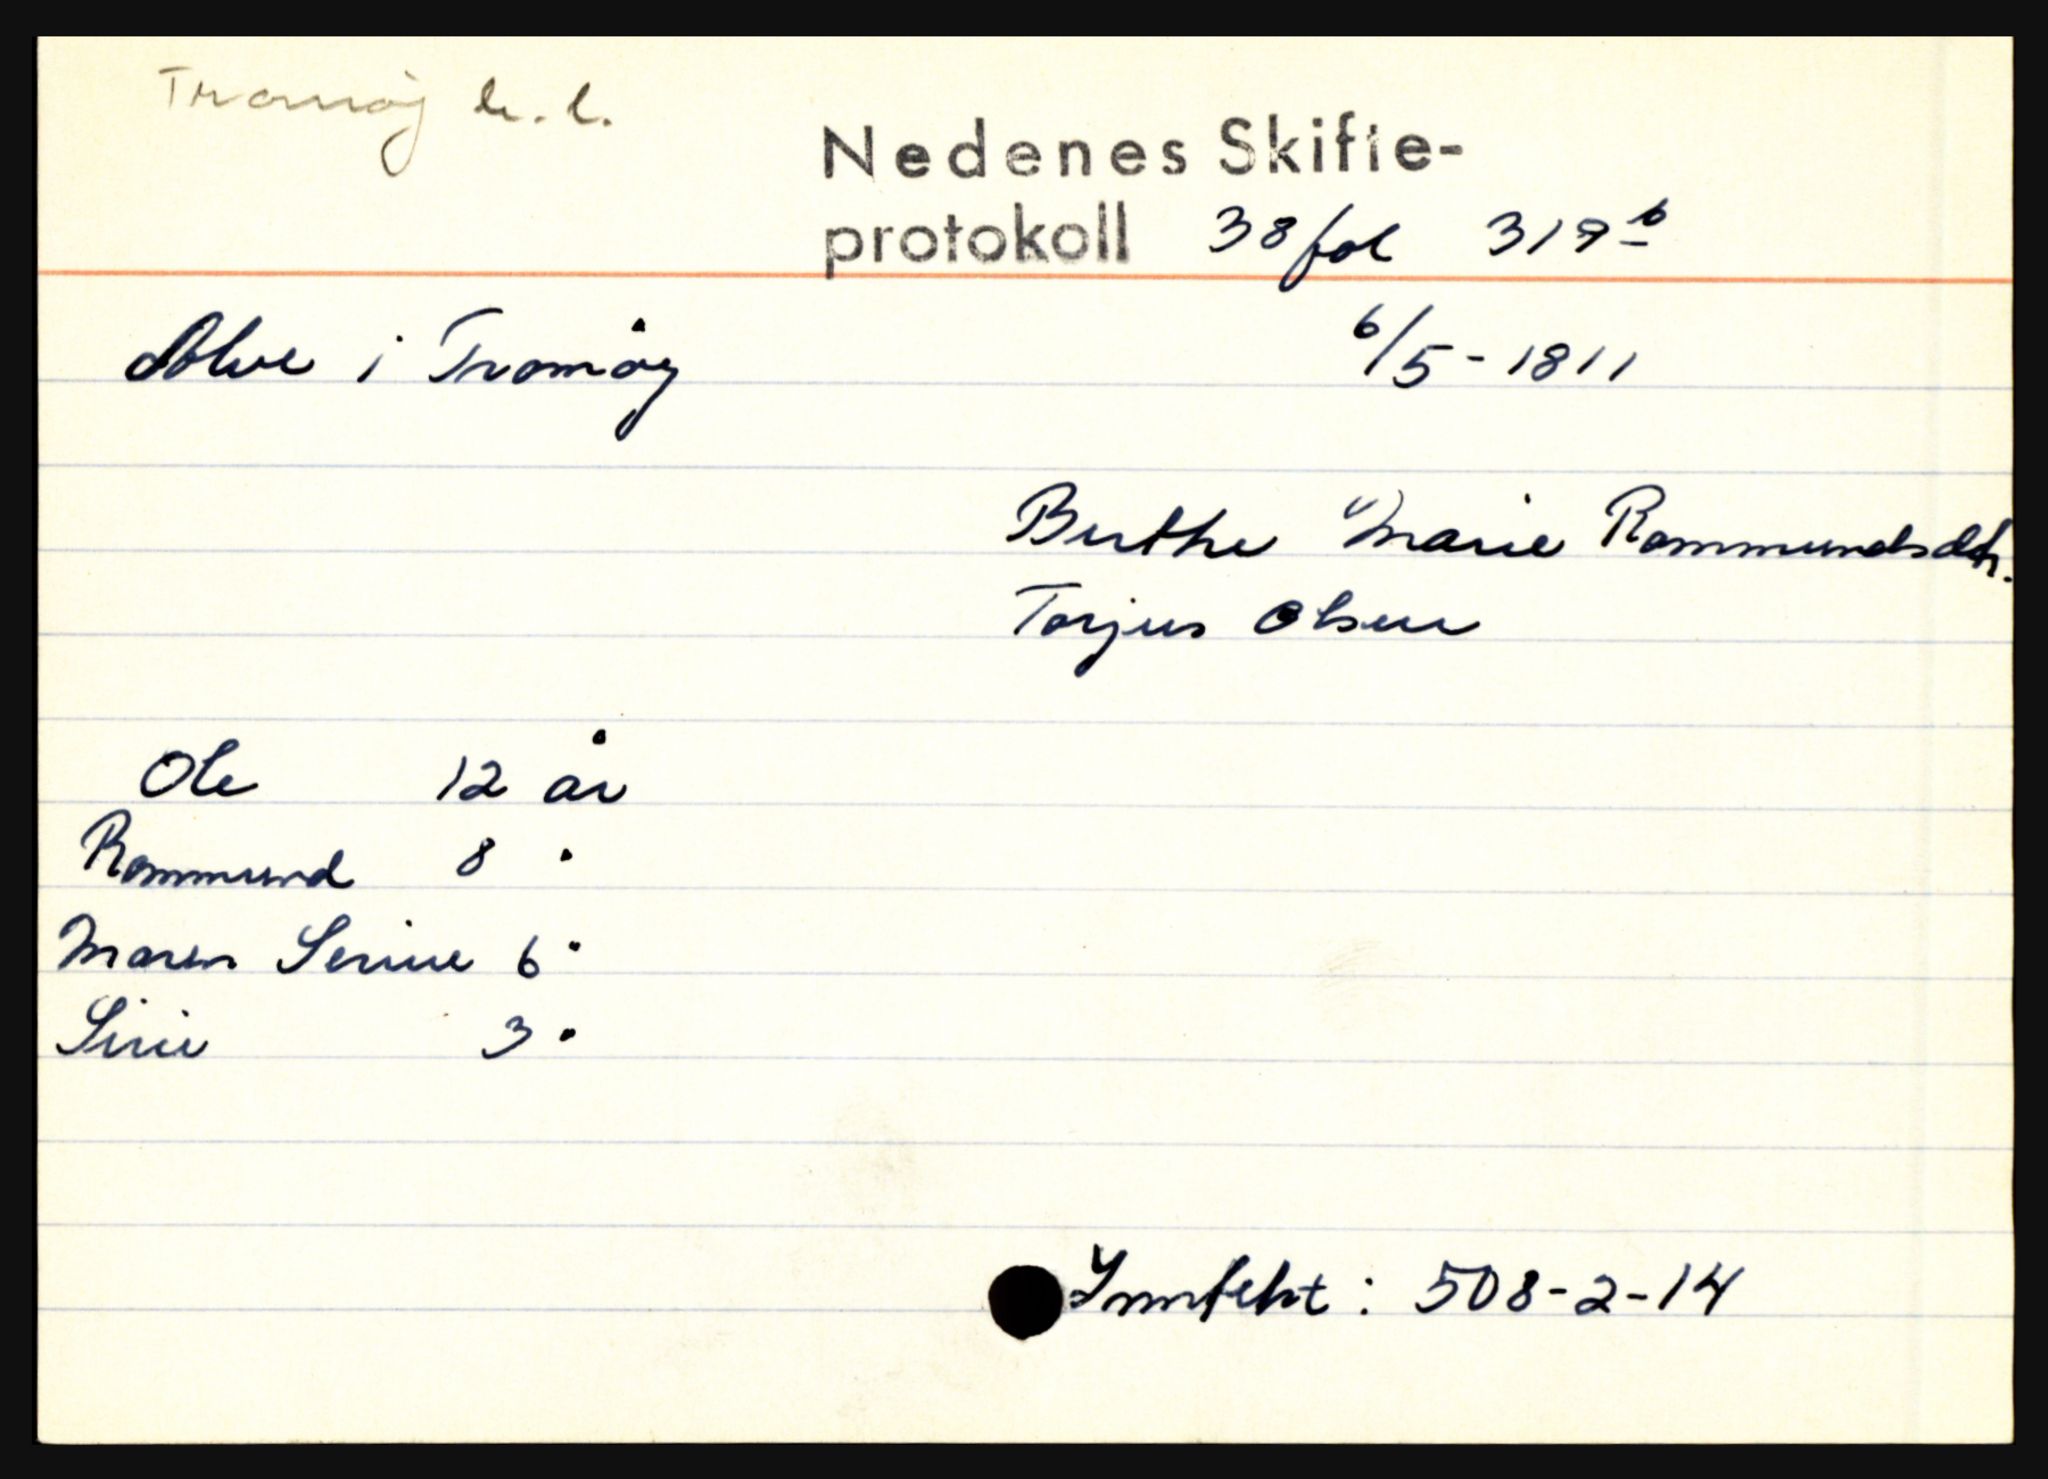 Tromøy h.l.
Nedenes Skifte-
protokoll 38 fol 319 b
Alve i Tromøy 6/5-1811
Berthe Marie Rommundsdtr.
Torjus Olsen
Ole 12 år
Rommund 8 "
Maren Serine 6 "
Sirie 3 "
Innfekt: 508-2-14